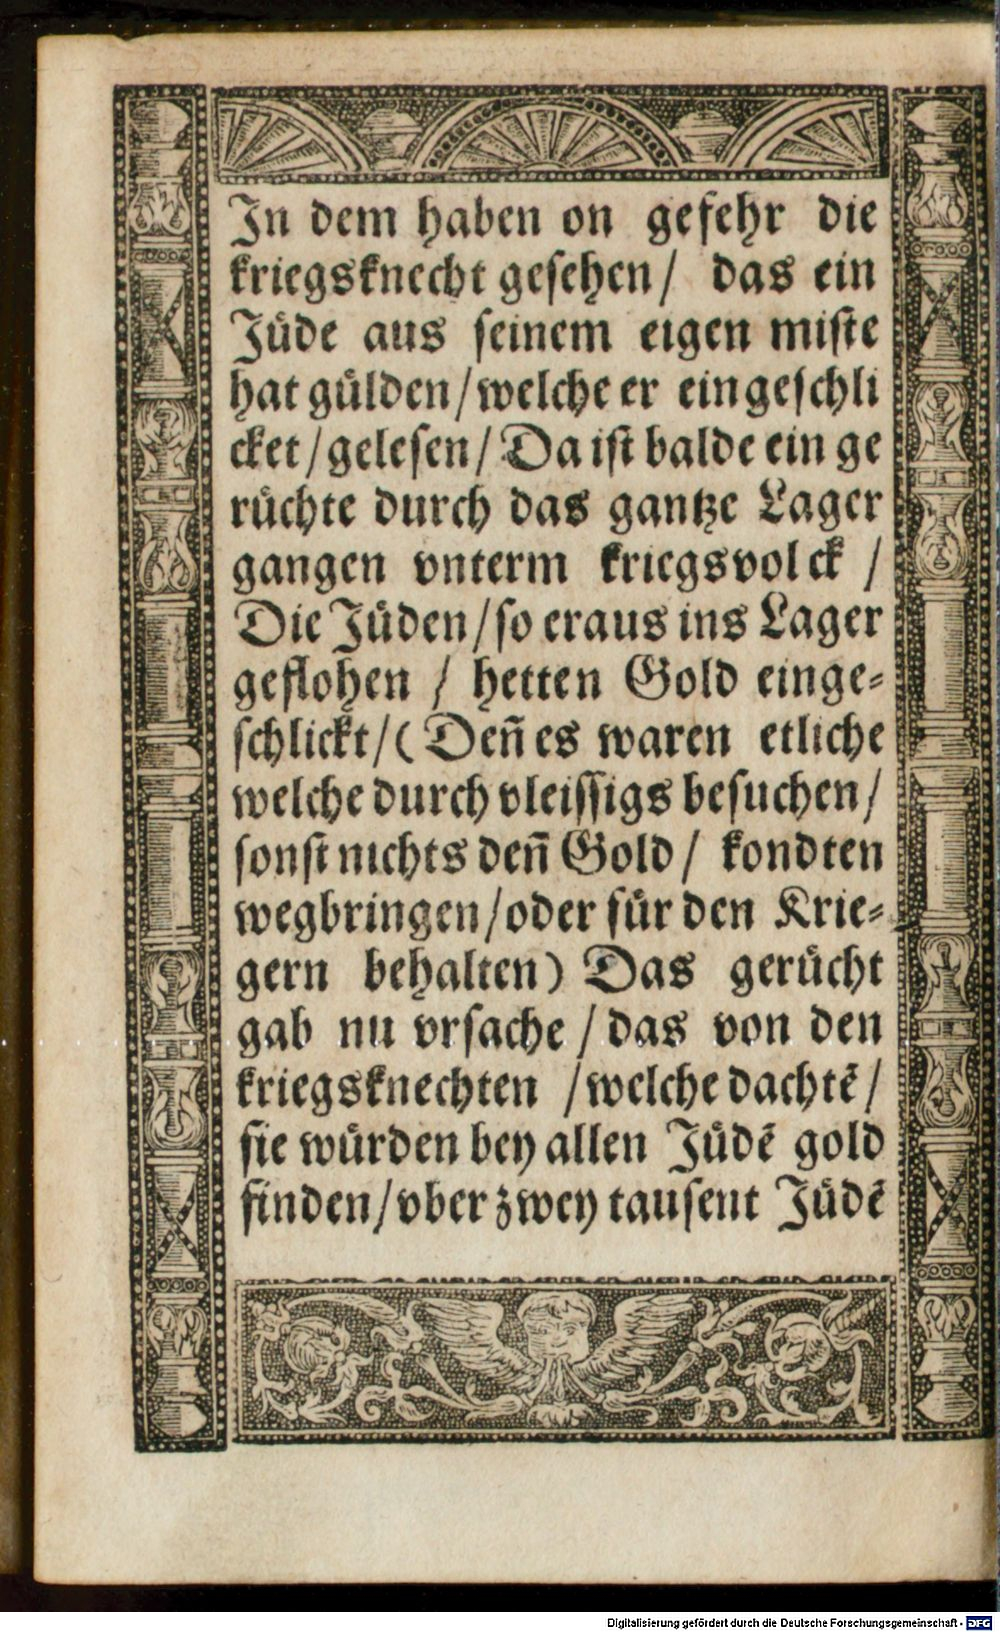 In dem haben on gefehr die
kriegsknecht gesehen / das ein
Jüde aus seinem eigen miste
hat gülden / welche er eingeschli
cket / gelesen / Da ist balde ein ge
rüchte durch das gantze Lager
gangen vnterm kriegsvolck /
Die Jüden / so eraus ins Lager
geflohen / hetten Gold einge-
schlickt / (Deñ es waren etliche
welche durch vleissigs besuchen /
sonst nichts deñ Gold / kondten
wegbringen / oder für den Krie-
gern behalten) Das gerücht
gab nu vrsache / das von den
kriegsknechten / welche dachtē /
sie würden bey allen Jüdē gold
finden / vber zwey tausent Jüdē
Digitalisierung gefördert durch die Deutsche Forschungsgemeinschaft - DFG